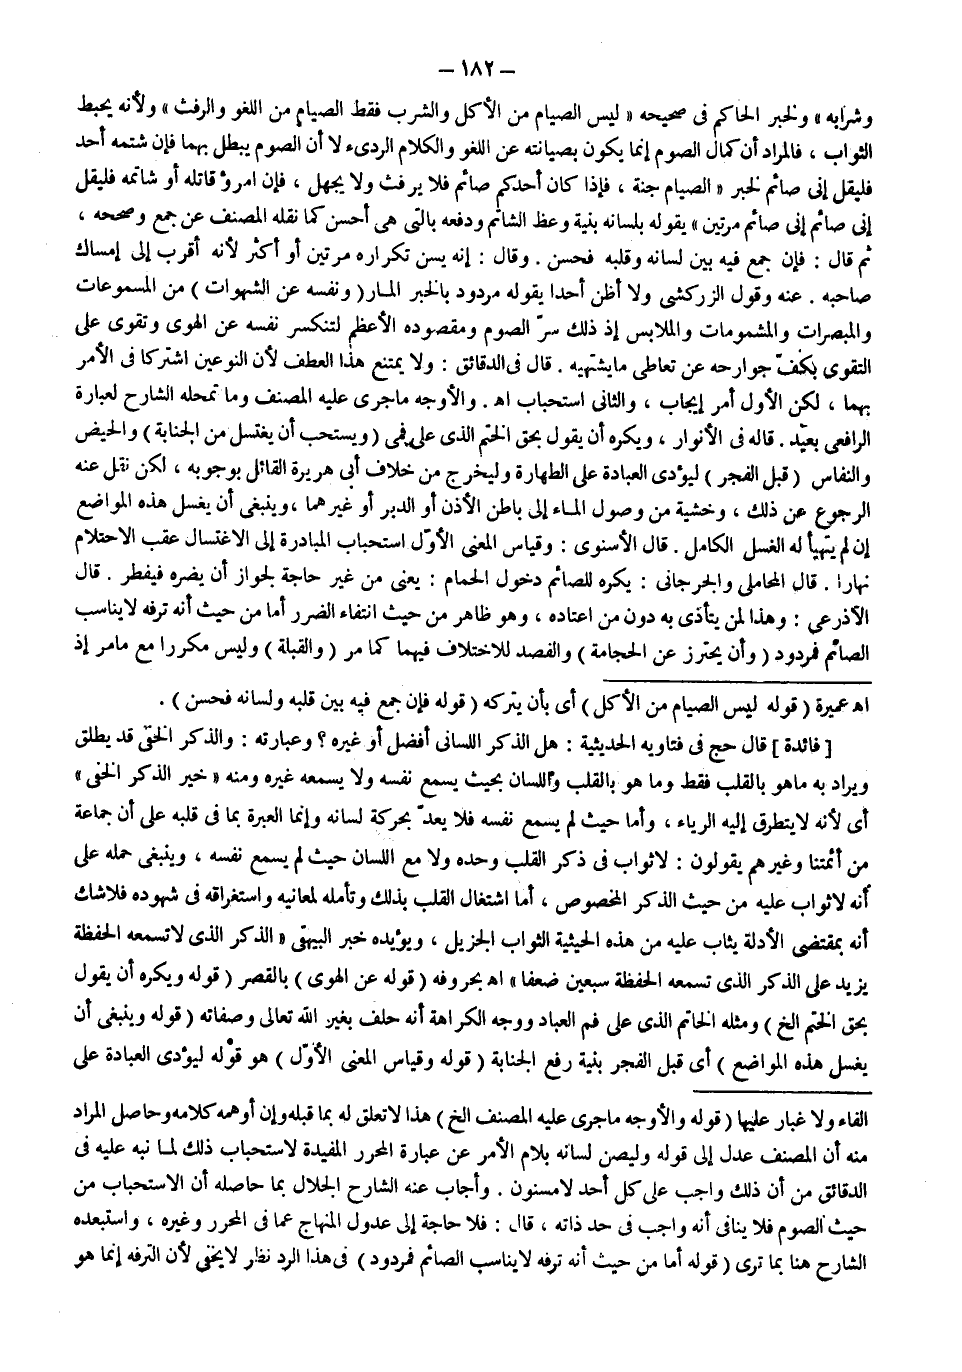 – ١٨٢ –
وشرابه » ولخبر الحاكم فى صحيحه « ليس الصيام من الأكل والشرب فقط الصيام من اللغو والرفث » ولأنه يحبط
الثواب ، فالمراد أن كمال الصوم إنما يكون بصيانته عن اللغو والكلام الردىء لا أن الصوم يبطل بهما فإن شتمه أحد
فليقل إنى صائم لخبر « الصيام جنة ، فإذا كان أحدكم صائم فلا يرفث ولا يجهل ، فإن امرؤ قاتله أو شاتمه فليقل
إنى صائم إنى صائم مرتين » يقوله بلسانه بنية وعظ الشاتم ودفعه بالتى هى أحسن كما نقله المصنف عن جمع وصححه ،
ثم قال : فإن جمع فيه بين لسانه وقلبه فحسن . وقال : إنه يسن تكراره مرتين أو أكثر لأنه أقرب إلى إمساك
صاحبه . عنه وقول الزركشى ولا أظن أحدا يقوله مردود بالخبر المـار ( ونفسه عن الشهوات ) من المسموعات
والمبصرات والمشمومات والملابس إذ ذلك سرّ الصوم ومقصوده الأعظم لتنكسر نفسه عن الهوى وتقوى على
التقوى بكفّ جوارحه عن تعاطى مايشتهيه . قال فى الدقائق : ولا يمتنع هذا العطف لأن النوعين اشتركا فى الأمر
بهما ، لكن الأول أمر إيجاب ، والثانى استحباب اهـ . والأوجه ماجرى عليه المصنف وما تمحله الشارح لعبارة
الرافعى بعيد . قاله فى الأنوار ، ويكره أن يقول بحق الختم الذى على فمى ( ويستحب أن يغتسل من الجنابة ) والحيض
والنفاس ( قبل الفجر ) ليؤدى العبادة على الطهارة وليخرج من خلاف أبى هريرة القائل بوجوبه ، لكن نقل عنه
الرجوع عن ذلك ، وخشية من وصول المـاء إلى باطن الأذن أو الدبر أو غيرهما ، وينبغى أن يغسل هذه المواضع
إن لم يتهيأ له الغسل الكامل . قال الأسنوى : وقياس المعنى الأوّل استحباب المبادرة إلى الاغتسال عقب الاحتلام
نهارا . قال المحاملى والجرجانى : يكره للصائم دخول الحمام : يعنى من غير حاجة لجواز أن يضره فيفطر . قال
الأذرعى : وهذا لمن يتأذى به دون من اعتاده ، وهو ظاهر من حيث انتفاء الضرر أما من حيث أنه ترفه لايناسب
الصائم فمردود ( وأن يحترز عن الحجامة ) والفصد للاختلاف فيهما كما مر ( والقبلة ) وليس مكررا مع مامر إذ
اهـ عميرة ( قوله ليس الصيام من الأكل ) أى بأن يتركه ( قوله فإن جمع فيه بين قلبه ولسانه فحسن ) .
[ فائدة ] قال حج فى فتاويه الحديثية : هل الذكر اللسانى أفضل أو غيره ؟ وعبارته : والذكر الخفى قد يطلق
ويراد به ماهو بالقلب فقط وما هو بالقلب واللسان بحيث يسمع نفسه ولا يسمعه غيره ومنه « خير الذكر الخفى »
أى لأنه لايتطرق إليه الرياء ، وأما حيث لم يسمع نفسه فلا يعدّ بحركة لسانه وإنما العبرة بما فى قلبه على أن جماعة
من أئمتنا وغيرهم يقولون : لاثواب فى ذكر القلب وحده ولا مع اللسان حيث لم يسمع نفسه ، وينبغى حمله على
أنه لاثواب عليه من حيث الذكر المخصوص ، أما اشتغال القلب بذلك وتأمله لمعانيه واستغراقه فى شهوده فلاشك
أنه بمقتضى الأدلة يثاب عليه من هذه الحيثية الثواب الجزيل ، ويؤيده خبر البيهقى « الذكر الذى لاتسمعه الحفظة
يزيد على الذكر الذى تسمعه الحفظة سبعين ضعفا » اهـ بحروفه ( قوله عن الهوى ) بالقصر ( قوله ويكره أن يقول
بحق الختم الخ ) ومثله الخاتم الذى على فم العباد ووجه الكراهة أنه حلف بغير الله تعالى وصفاته ( قوله وينبغى أن
يغسل هذه المواضع ) أى قبل الفجر بنية رفع الجنابة ( قوله وقياس المعنى الأوّل ) هو قوله ليؤدى العبادة على
الفاء ولا غبار عليها ( قوله والأوجه ماجرى عليه المصنف الخ ) هذا لاتعلق له بما قبله وإن أوهمه كلامه وحاصل المراد
منه أن المصنف عدل إلى قوله وليصن لسانه بلام الأمر عن عبارة المحرر المفيدة لاستحباب ذلك لمـا نبه عليه فى
الدقائق من أن ذلك واجب على كل أحد لامسنون . وأجاب عنه الشارح الجلال بما حاصله أن الاستحباب من
حيث الصوم فلا ينافى أنه واجب فى حد ذاته ، قال : فلا حاجة إلى عدول المنهاج عما فى المحرر وغيره ، واستبعده
الشارح هنا بما ترى ( قوله أما من حيث أنه ترفه لايناسب الصائم فمردود ) فى هذا الرد نظر لايخفى لأن الترفه إنما هو